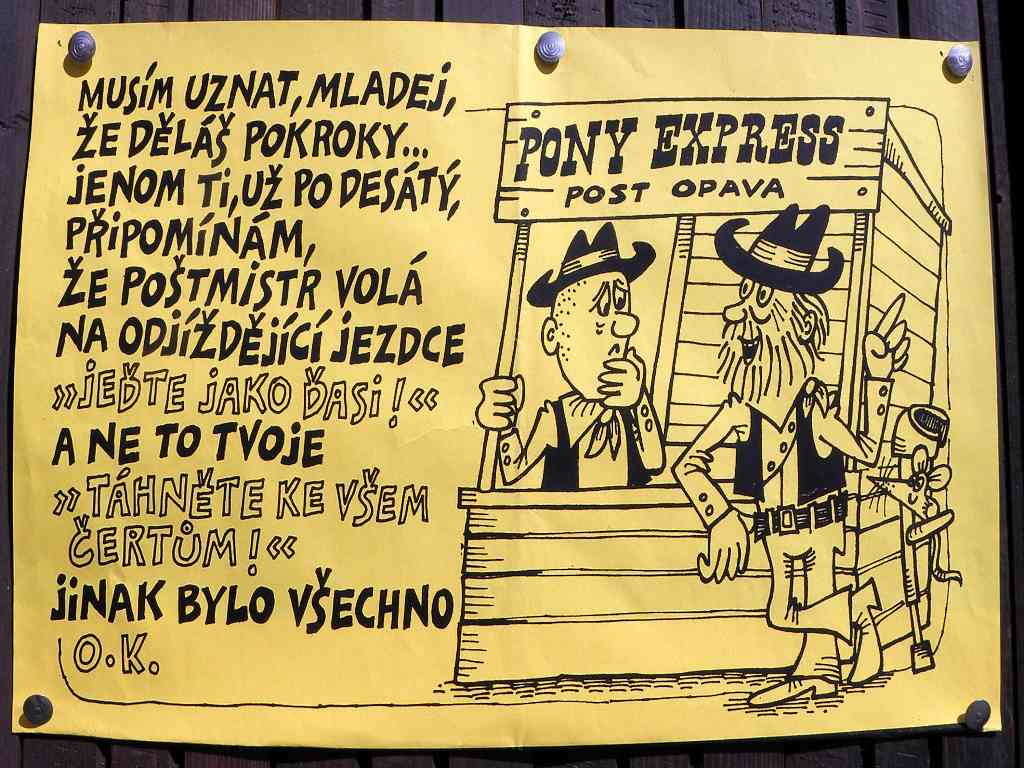 MUSÍM UZNAT, MLADEJ,
ŽE DĚLÁŠ POKROKY...
JENOM TI, UŽ PO DESÁTÝ,
PŘIPOMÍNÁM,
ŽE POŠTMISTR VOLÁ
NA ODJÍŽDĚJÍCÍ JEZDCE
»JEĎTE JAKO ĎASI!«
A NE TO TVOJE
»TÁHNĚTE KE VŠEM
ČERTŮM!«
JINAK BYLO VŠECHNO
O.K.
PONY EXPRESS
POST OPAVA